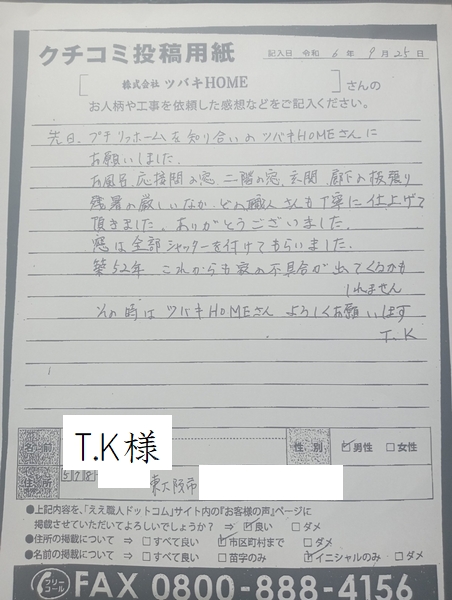 クチコミ投稿用紙
記入日 令和 6 年 9 月 25 日
[株式会社 ツバキHOME]さんの
お人柄や工事を依頼した感想などをご記入ください。
先日、プチリフォームを知り合いのツバキHOMEさんに
お願いしました。
お風呂、応接間の窓、二階の窓、玄関、廊下の板張り
残暑の厳しいなか、どの職人さんも丁寧に仕上げて
頂きました。ありがとうございました。
窓は全部シャッターを付けてもらいました。
築52年 これからも家の不具合が出てくるかも
しれません
その時は ツバキHOMEさん よろしくお願いします
T.K
名前 T.K様 性別 ☑男性 □女性
住所 578 東大阪市
●上記内容を、「ええ職人ドットコム」サイト内の『お客様の声』ページに
掲載させていただいてよろしいでしょうか? ⇒ ☑良い □ダメ
●住所の掲載について ⇒ □すべて良い ☑市区町村まで □ダメ
●名前の掲載について ⇒ □すべて良い □苗字のみ ☑イニシャルのみ □ダメ
フリーコール FAX 0800-888-4156